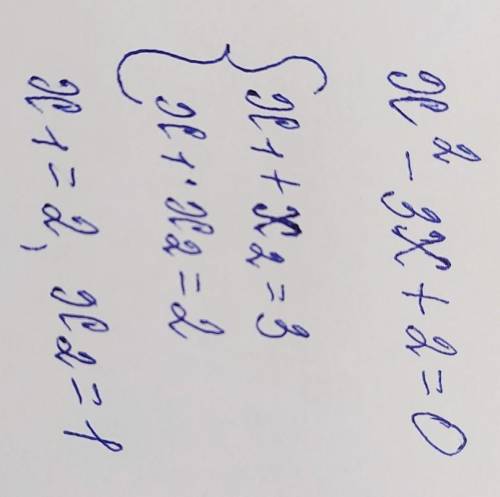 x² - 3x + 2 = 0
{ x1 + x2 = 3
x1 · x2 = 2
x1 = 2, x2 = 1